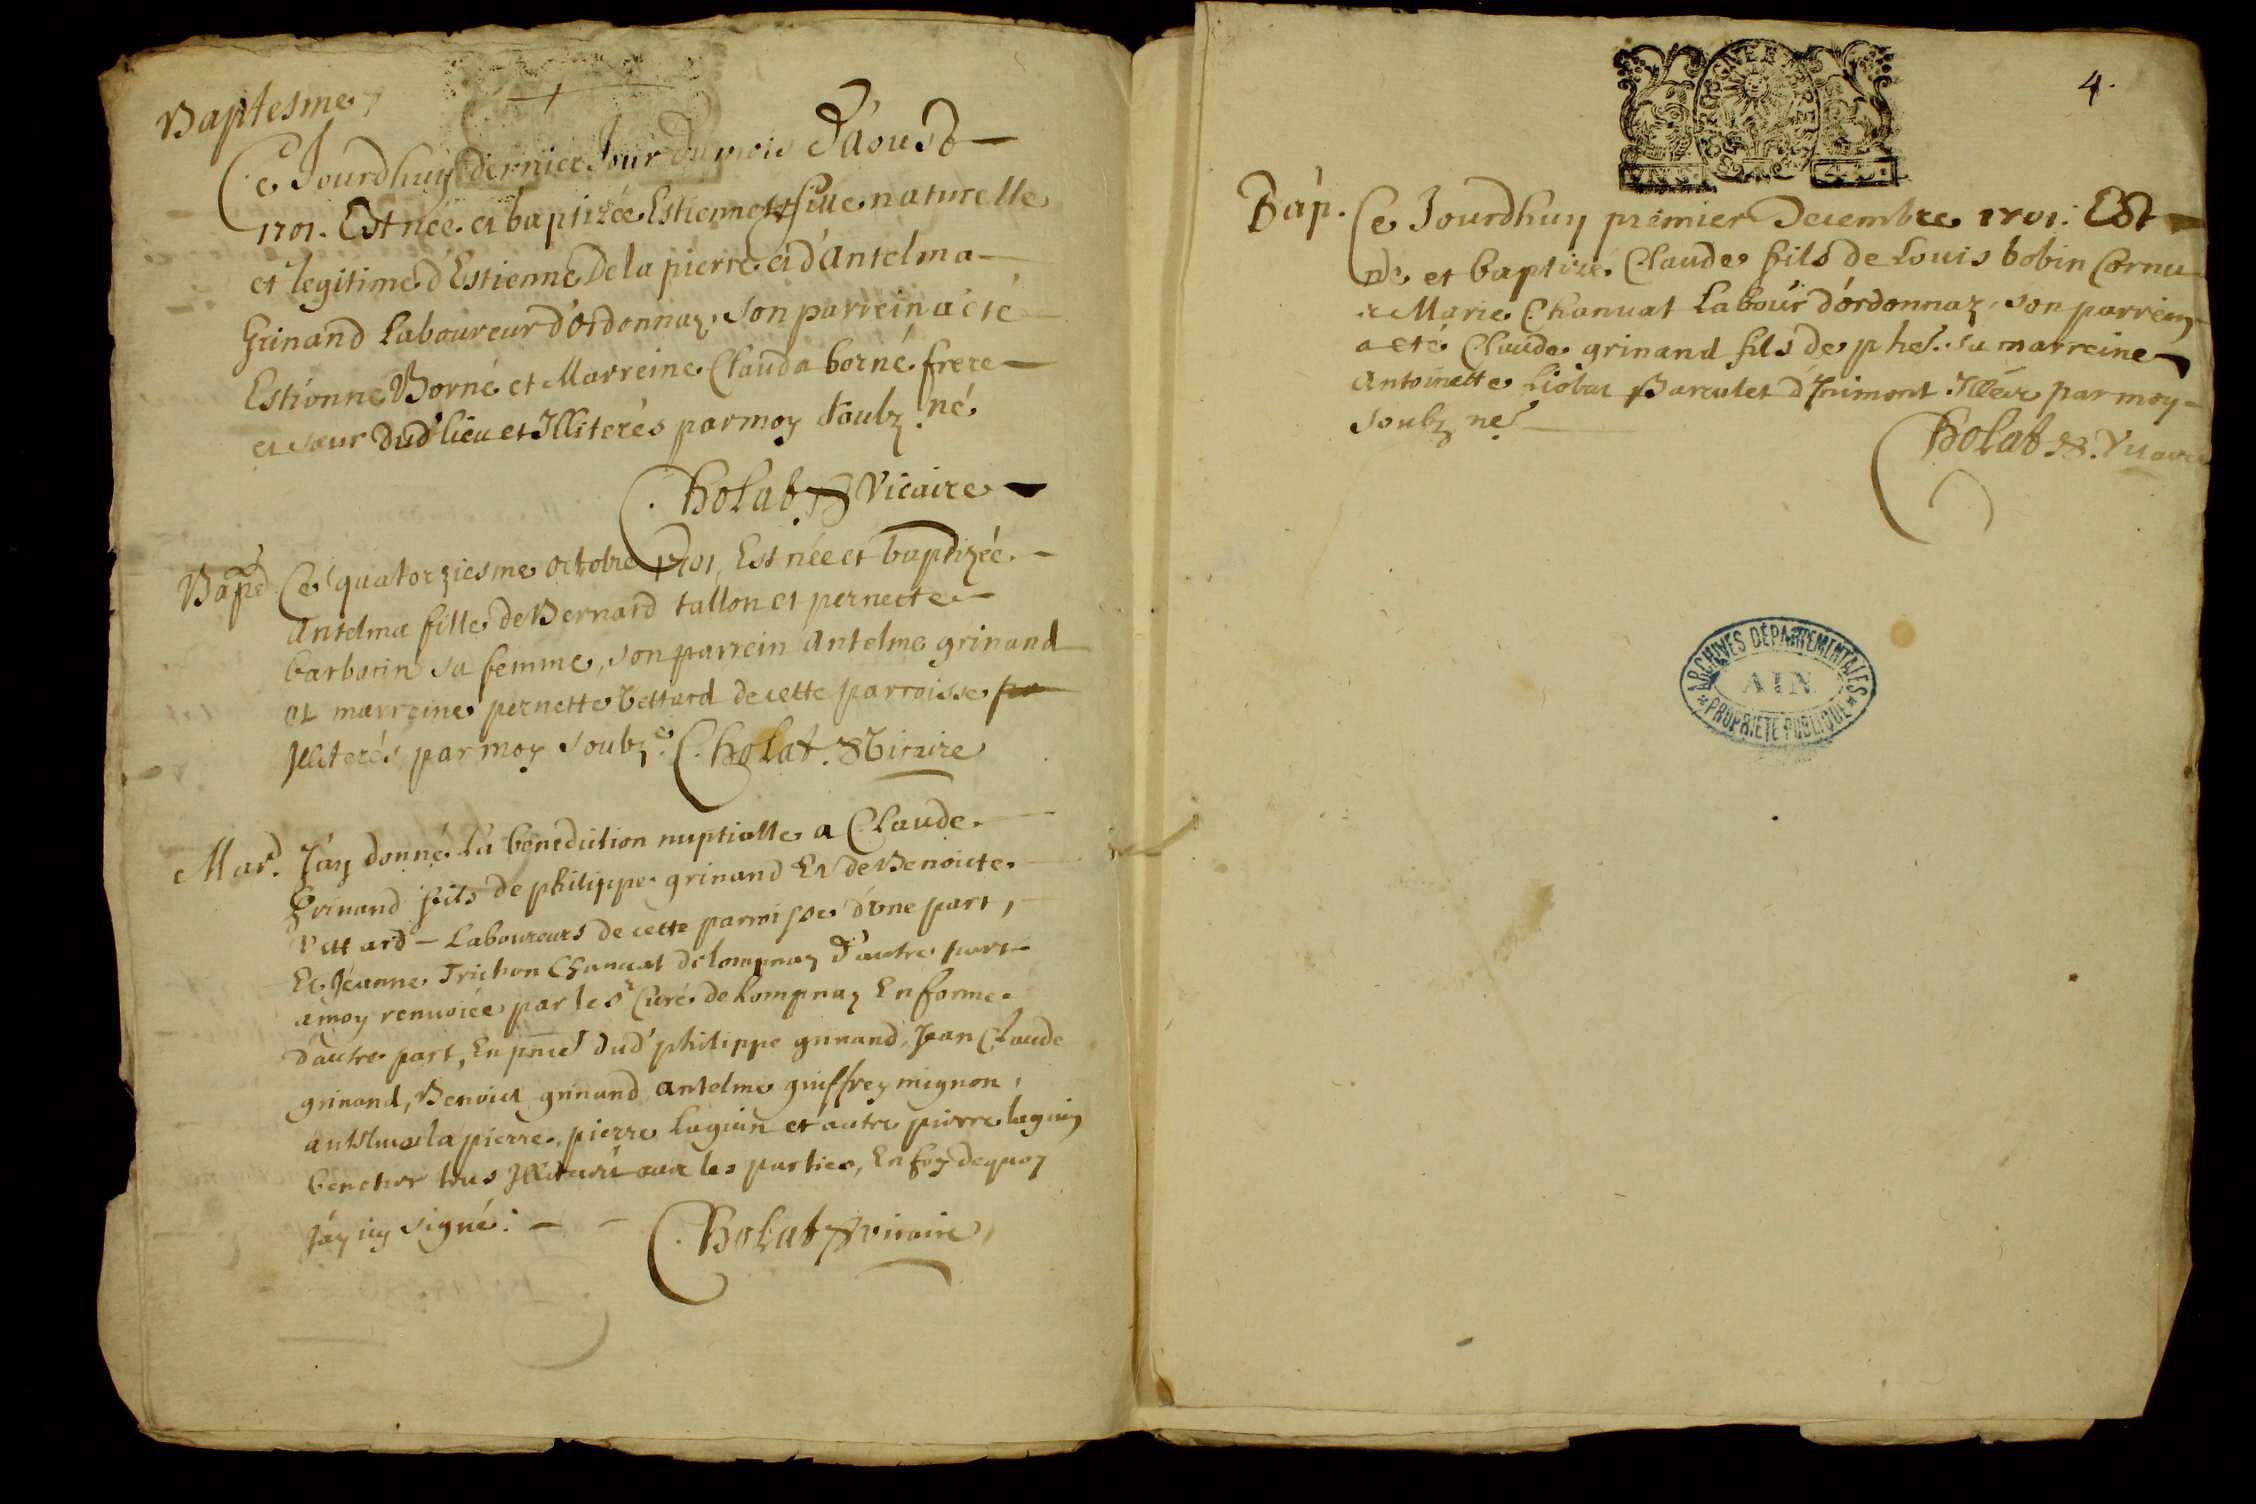 Baptesme
Ce Jourdhuy dernier Jour du mois d'Aoust
1701. Est née et baptizée Estiennette fille naturelle
et legitime d'Estienne De la pierre et d'Antelma
Grinand Laboureur d'Ordonnaz, son parrein a eté
Estienne Borné et Marreine Clauda borné frere
et sœur dud' lieu et Illiterés par moy soubz.né
Cholat Vicaire
Bape Ce quatorziesme octobre 1701, Est née et baptizée
Antelma fille de Bernard tallon et pernette
barbarin sa femme, son parrein Antelme grinand
et marreine pernette Vettard de cette parroisse
Illiterés, par moy soubz.é Cholat. Vicaire
Mard. J'ay donné la benediction nuptialle a Claude
Grinand fils de philippe grinand Et de Benoicte
Vettard – Laboureurs de cette parroisse d'une part,
Et Jéanne Trichon Chanuat de lompnaz d'autre part
a moy renvoiée par le sr Curé de Lompnaz En forme
d'autre part, En pnce dud' philippe grinand, Jean Claude
grinand, Benoict grinand antelme guiffrey mignon,
antelme la pierre, pierre laguin et autre pierre laguin
tous Illiterés avec les parties, En foy dequoy
j'ay icy signé: – – Cholat vicaire,
4.
Bap. Ce Jourdhuy premier Decembre 1701. Est
né et baptizé Claude fils de Louis bobin Cornu
et Marie Chanuat Labour d'ordonnaz, son parrein
a eté Claude grinand fils de phe. sa marreine
Antoinette Liobar Barculet d'Inimont Illére par moy
soubz né
Cholat Vicaire
ARCHIVES DÉPARTEMENTALES
AIN
PROPRIÉTÉ PUBLIQUE